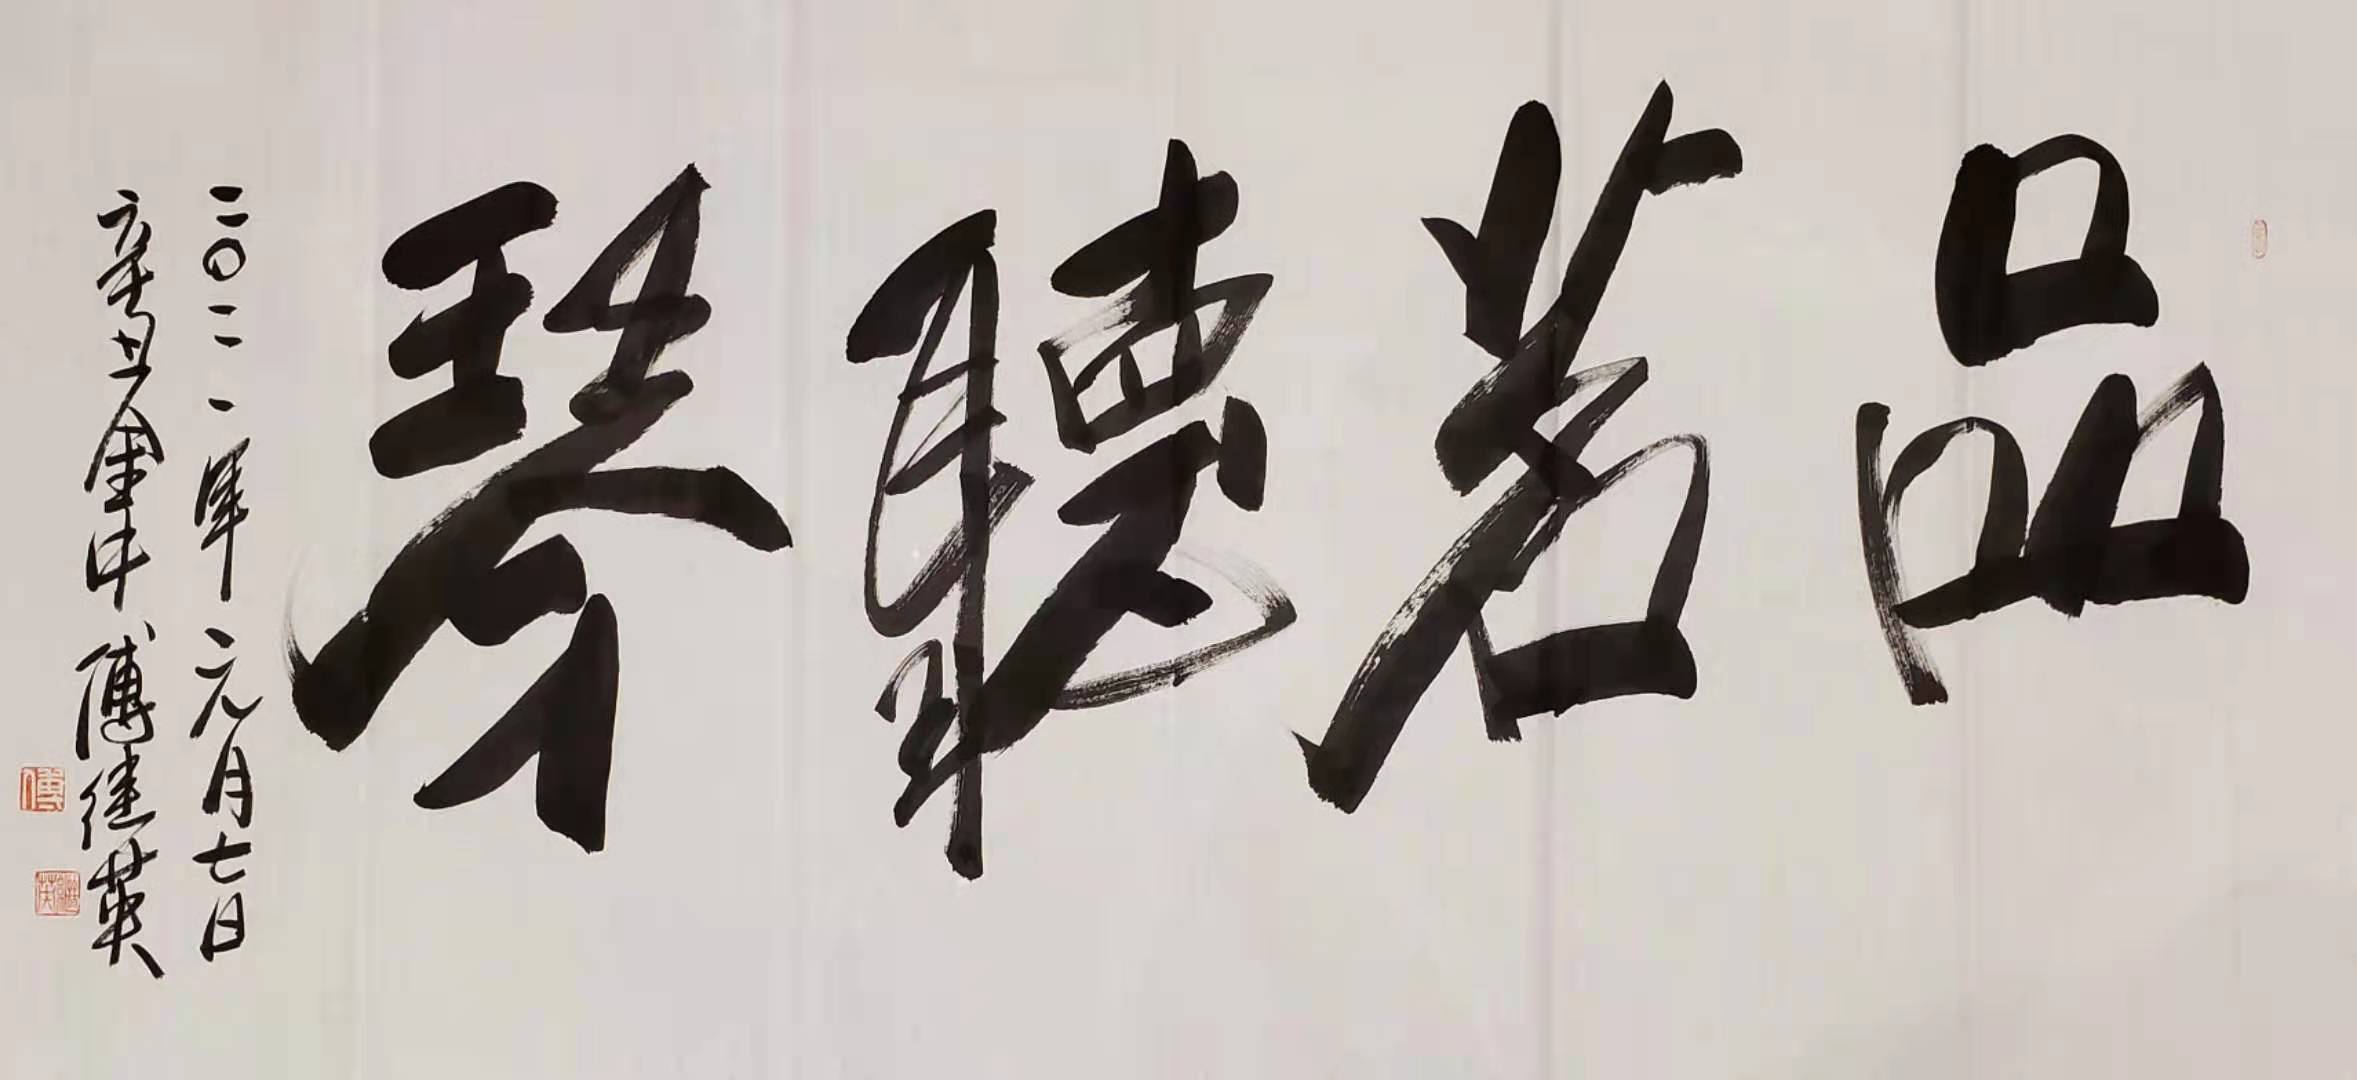 品茗聽琴
二〇二一年元月七日
辛丑金牛傅继英
傅
继英